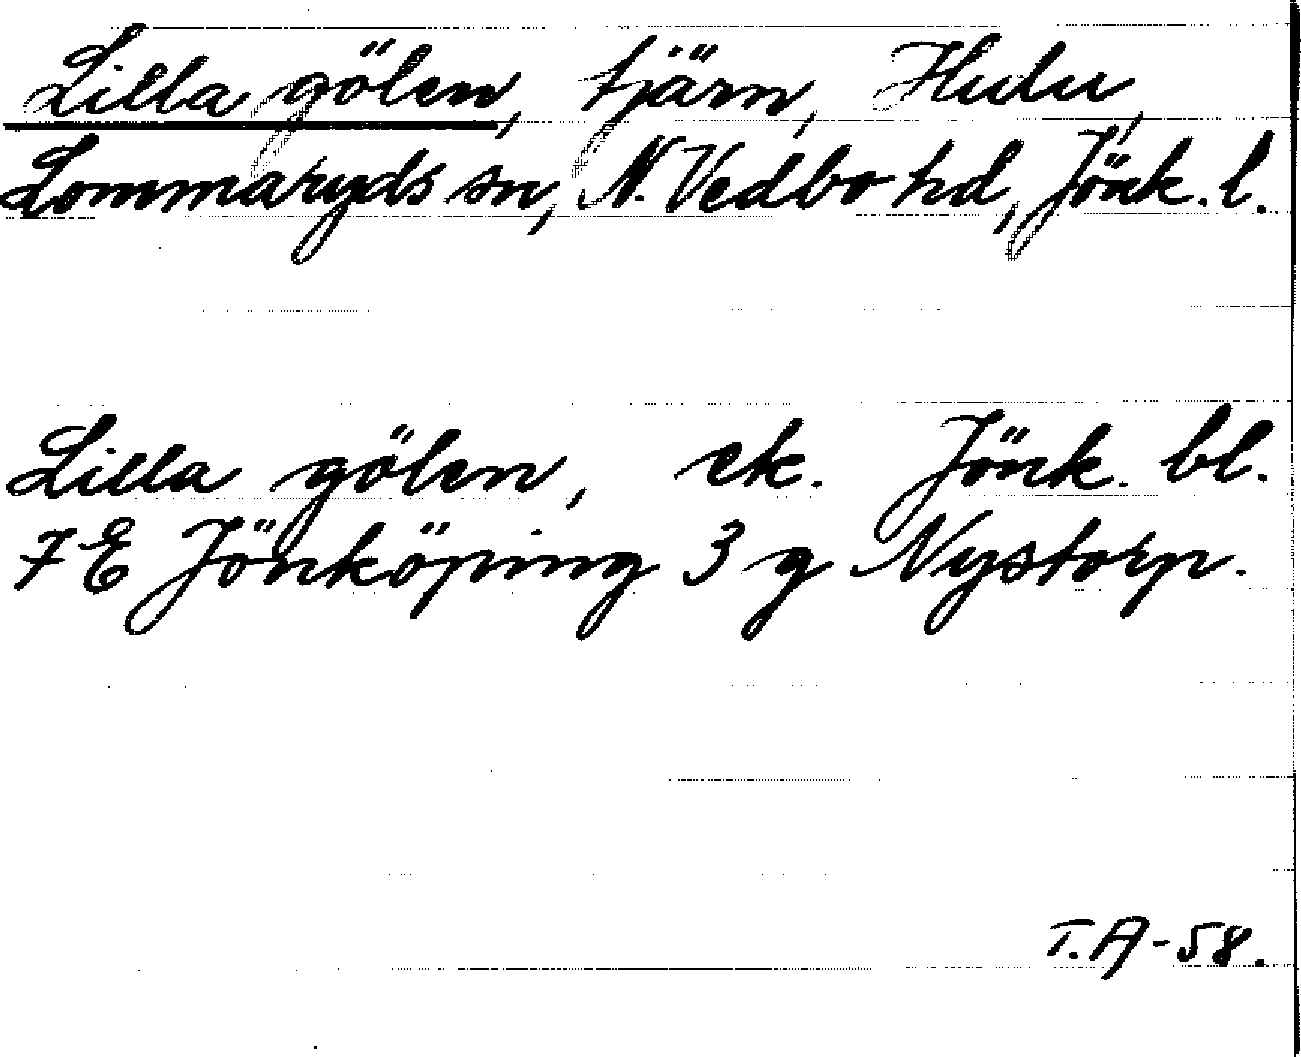 Lilla gölen, tjärn, Hulu,
Lommaryds sn, N. Vedbo hd, Jönk. l.
Lilla gölen, ek. Jönk. bl.
7 E Jönköping 3 g Nystorp.
T.A-58.